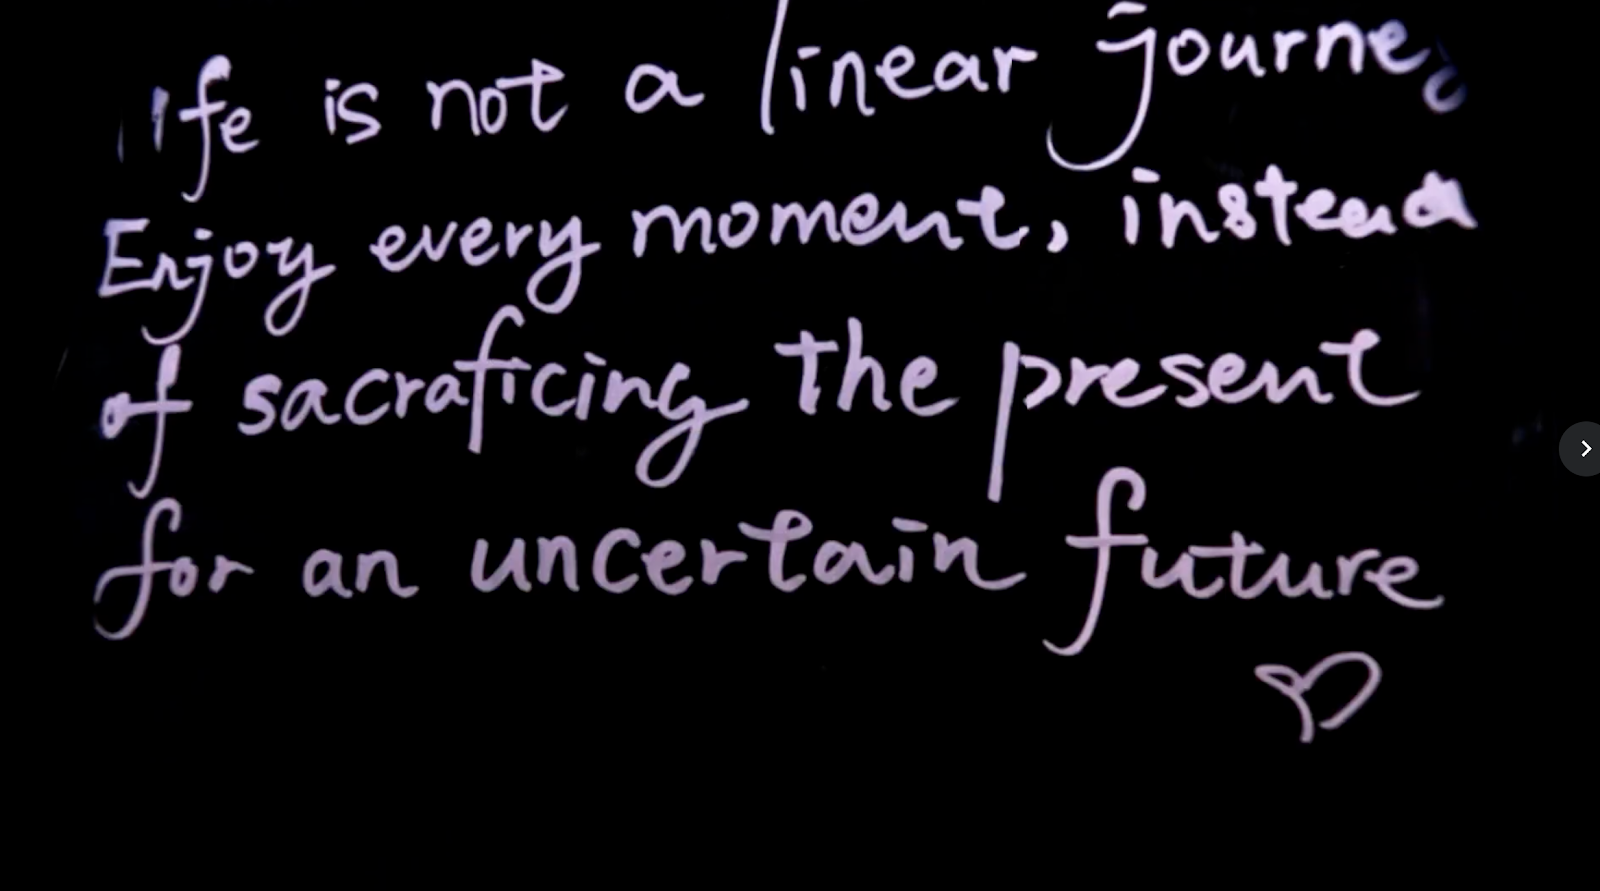 life is not a linear journey
Enjoy every moment, instead
of sacraficing the present
for an uncertain future